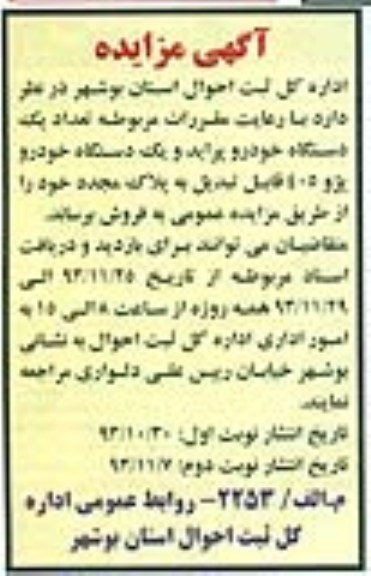 آگهی مزایده
اداره کل ثبت احوال استان بوشهر در نظر
دارد با رعایت مقررات مربوطه تعداد یک
دستگاه خودرو پراید و یک دستگاه خودرو
پژو ۴۰۵ قابل تبدیل به پلاک مجدد خود را
از طریق مزایده عمومی به فروش برساند.
متقاضیان می توانند برای بازدید و دریافت
اسناد مربوطه از تاریخ ۹۳/۱۱/۲۵ الی
۹۳/۱۱/۲۹ همه روزه از ساعت ۸ الی ۱۵ به
امور اداری اداره کل ثبت احوال به نشانی
بوشهر خیابان رییس علی دلواری مراجعه
نمایند.
تاریخ انتشار نوبت اول: ۹۳/۱۰/۳۰
تاریخ انتشار نوبت دوم: ۹۳/۱۱/۷
م.الف/ ۲۲۵۳- روابط عمومی اداره
کل ثبت احوال استان بوشهر